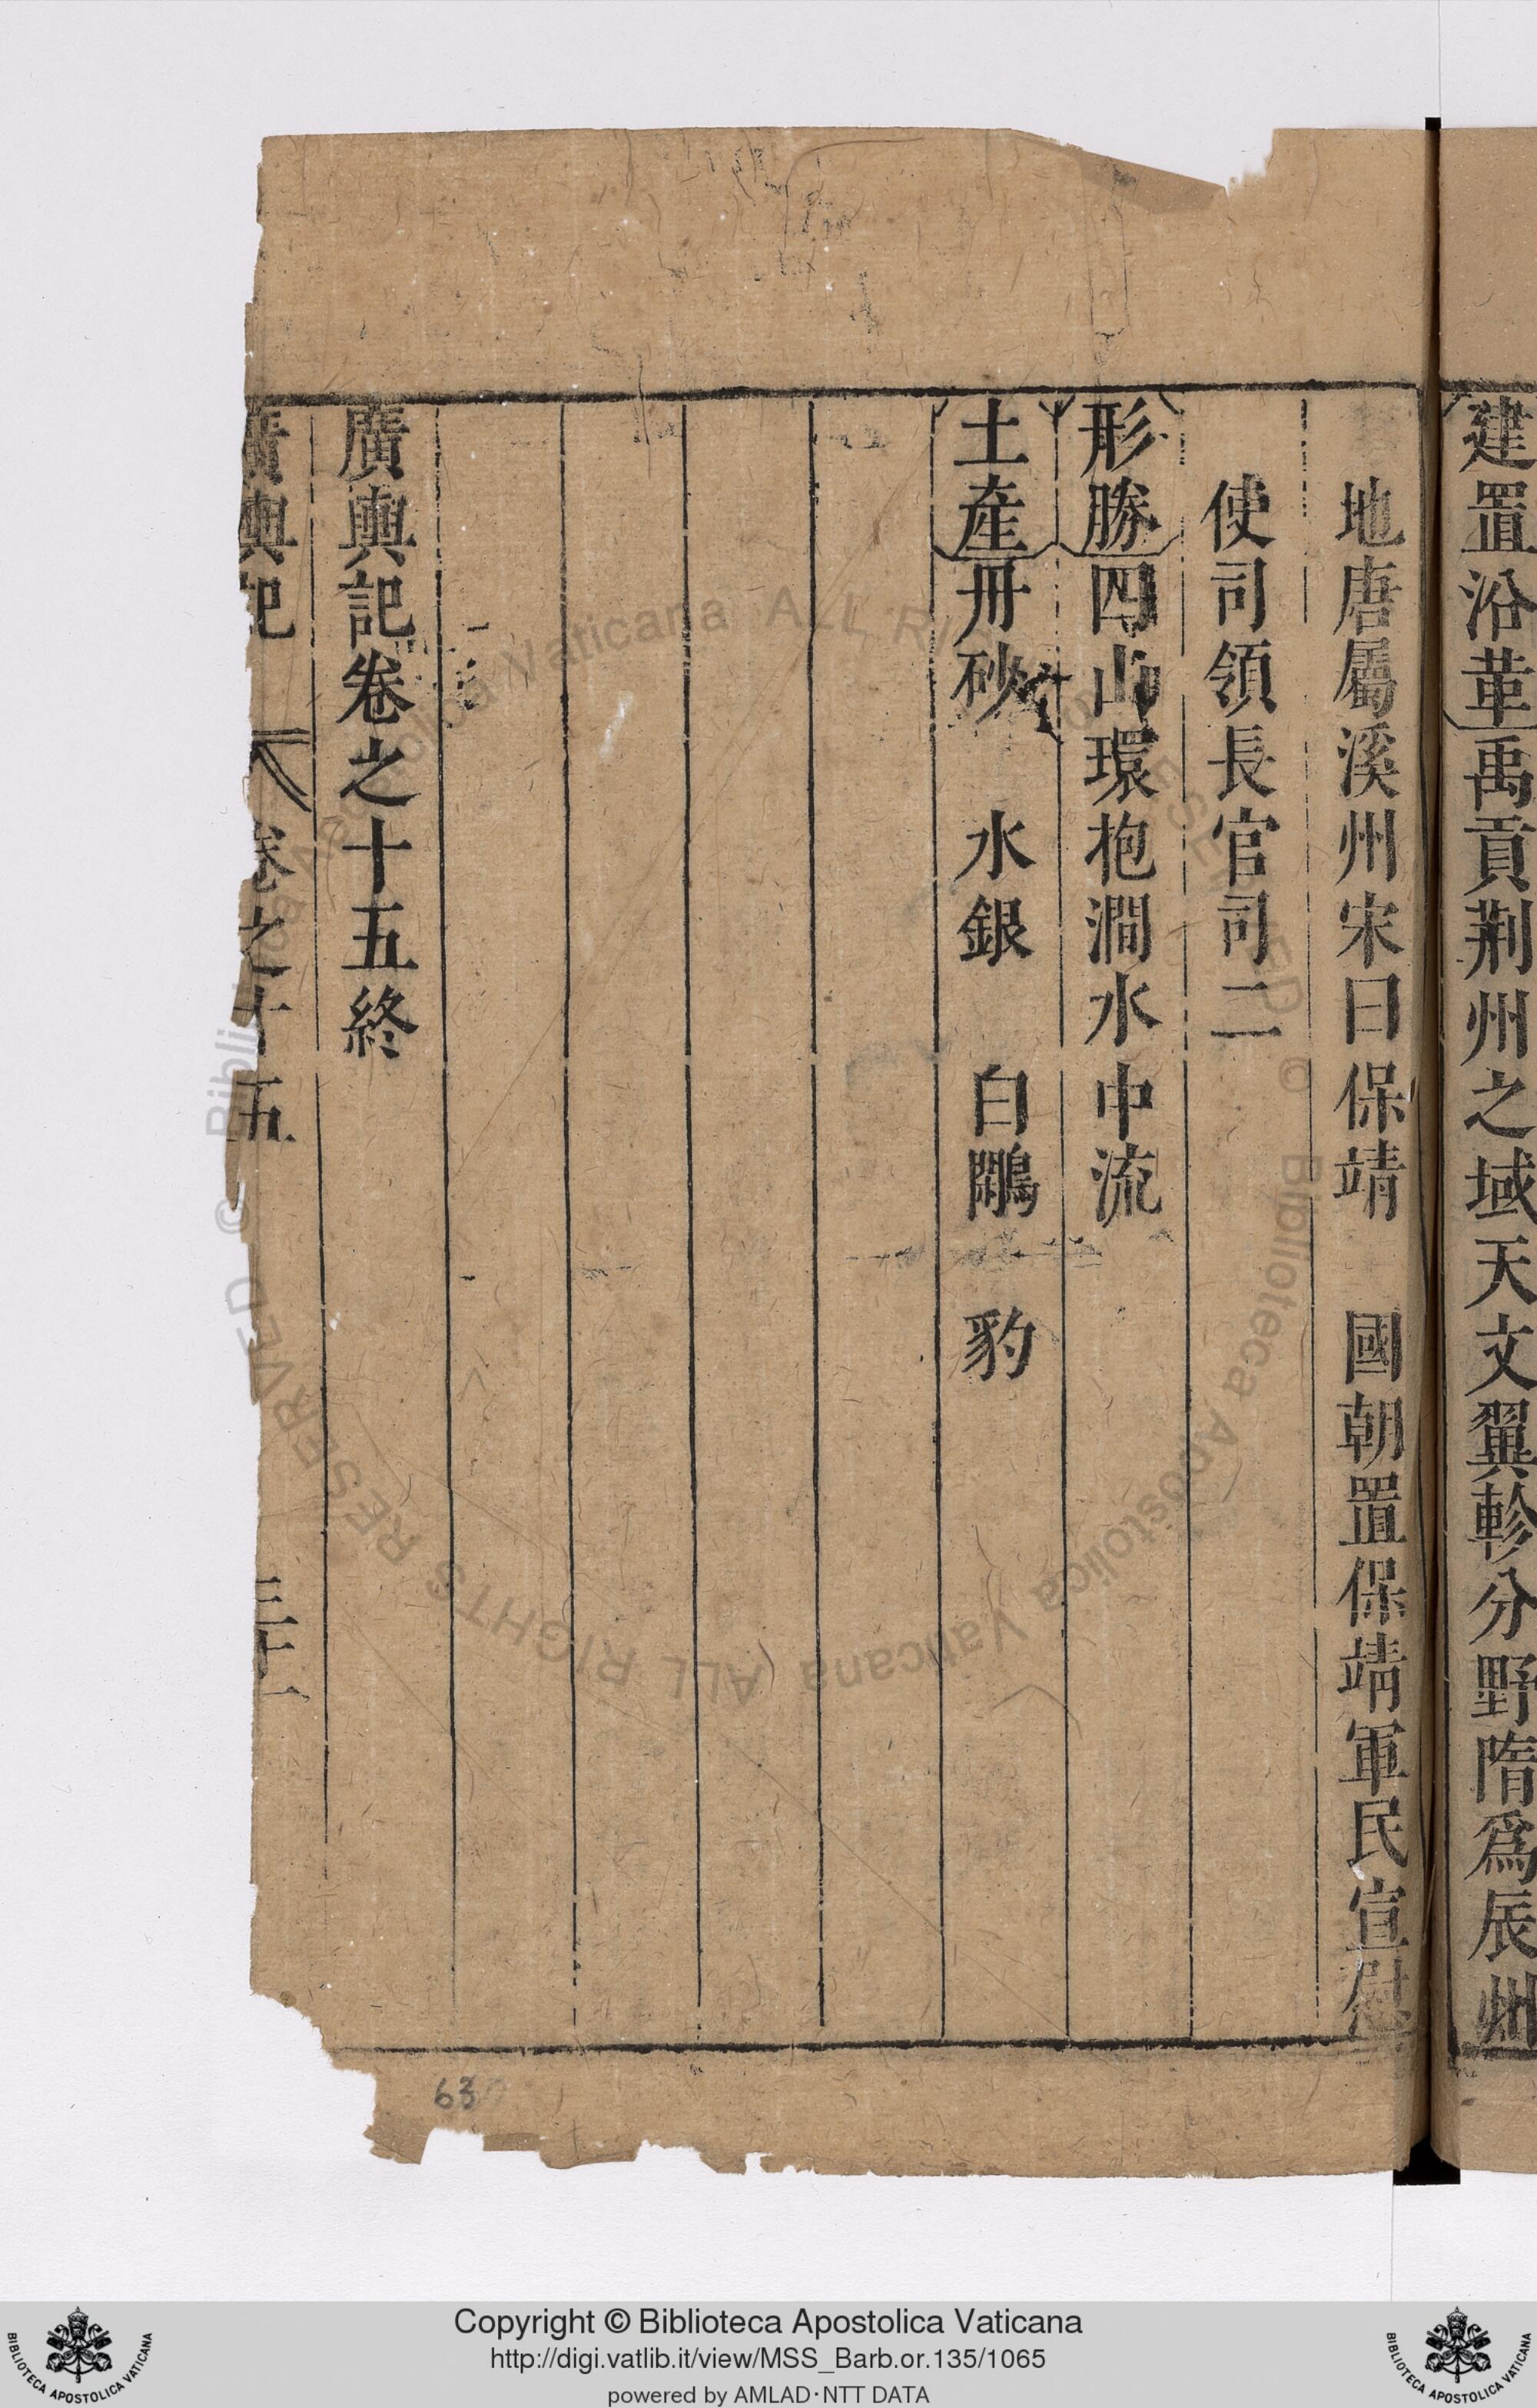 建置沿革禹貢荆州之域天文翼軫分野隋爲辰州
地唐屬溪州宋曰保靖　國朝置保靖軍民宣慰
使司領長官司二
形勝四山環抱澗水中流
土產丹砂　水銀　白鷴　豹
廣輿記卷之十五終
廣輿記　卷之十五　三十一
63
Copyright © Biblioteca Apostolica Vaticana
http://digi.vatlib.it/view/MSS_Barb.or.135/1065
powered by AMLAD·NTT DATA
BIBLIOTECA APOSTOLICA VATICANA
BIBLIOTECA APOSTOLICA VATICANA
Biblioteca Apostolica Vaticana ALL RIGHTS RESERVED © Biblioteca Apostolica Vaticana ALL RIGHTS RESERVED ©